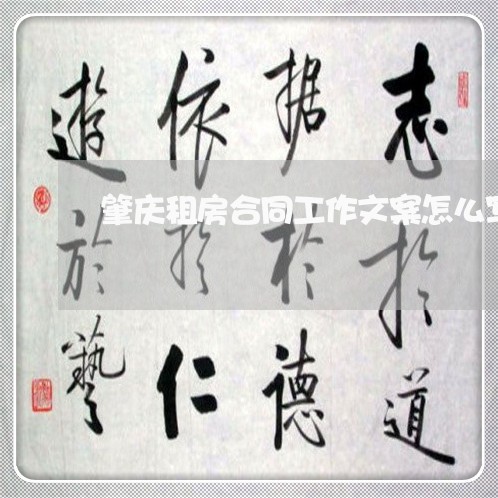 志於道
据於德
依於仁
遊於藝
肇庆租房合同工作文案怎么